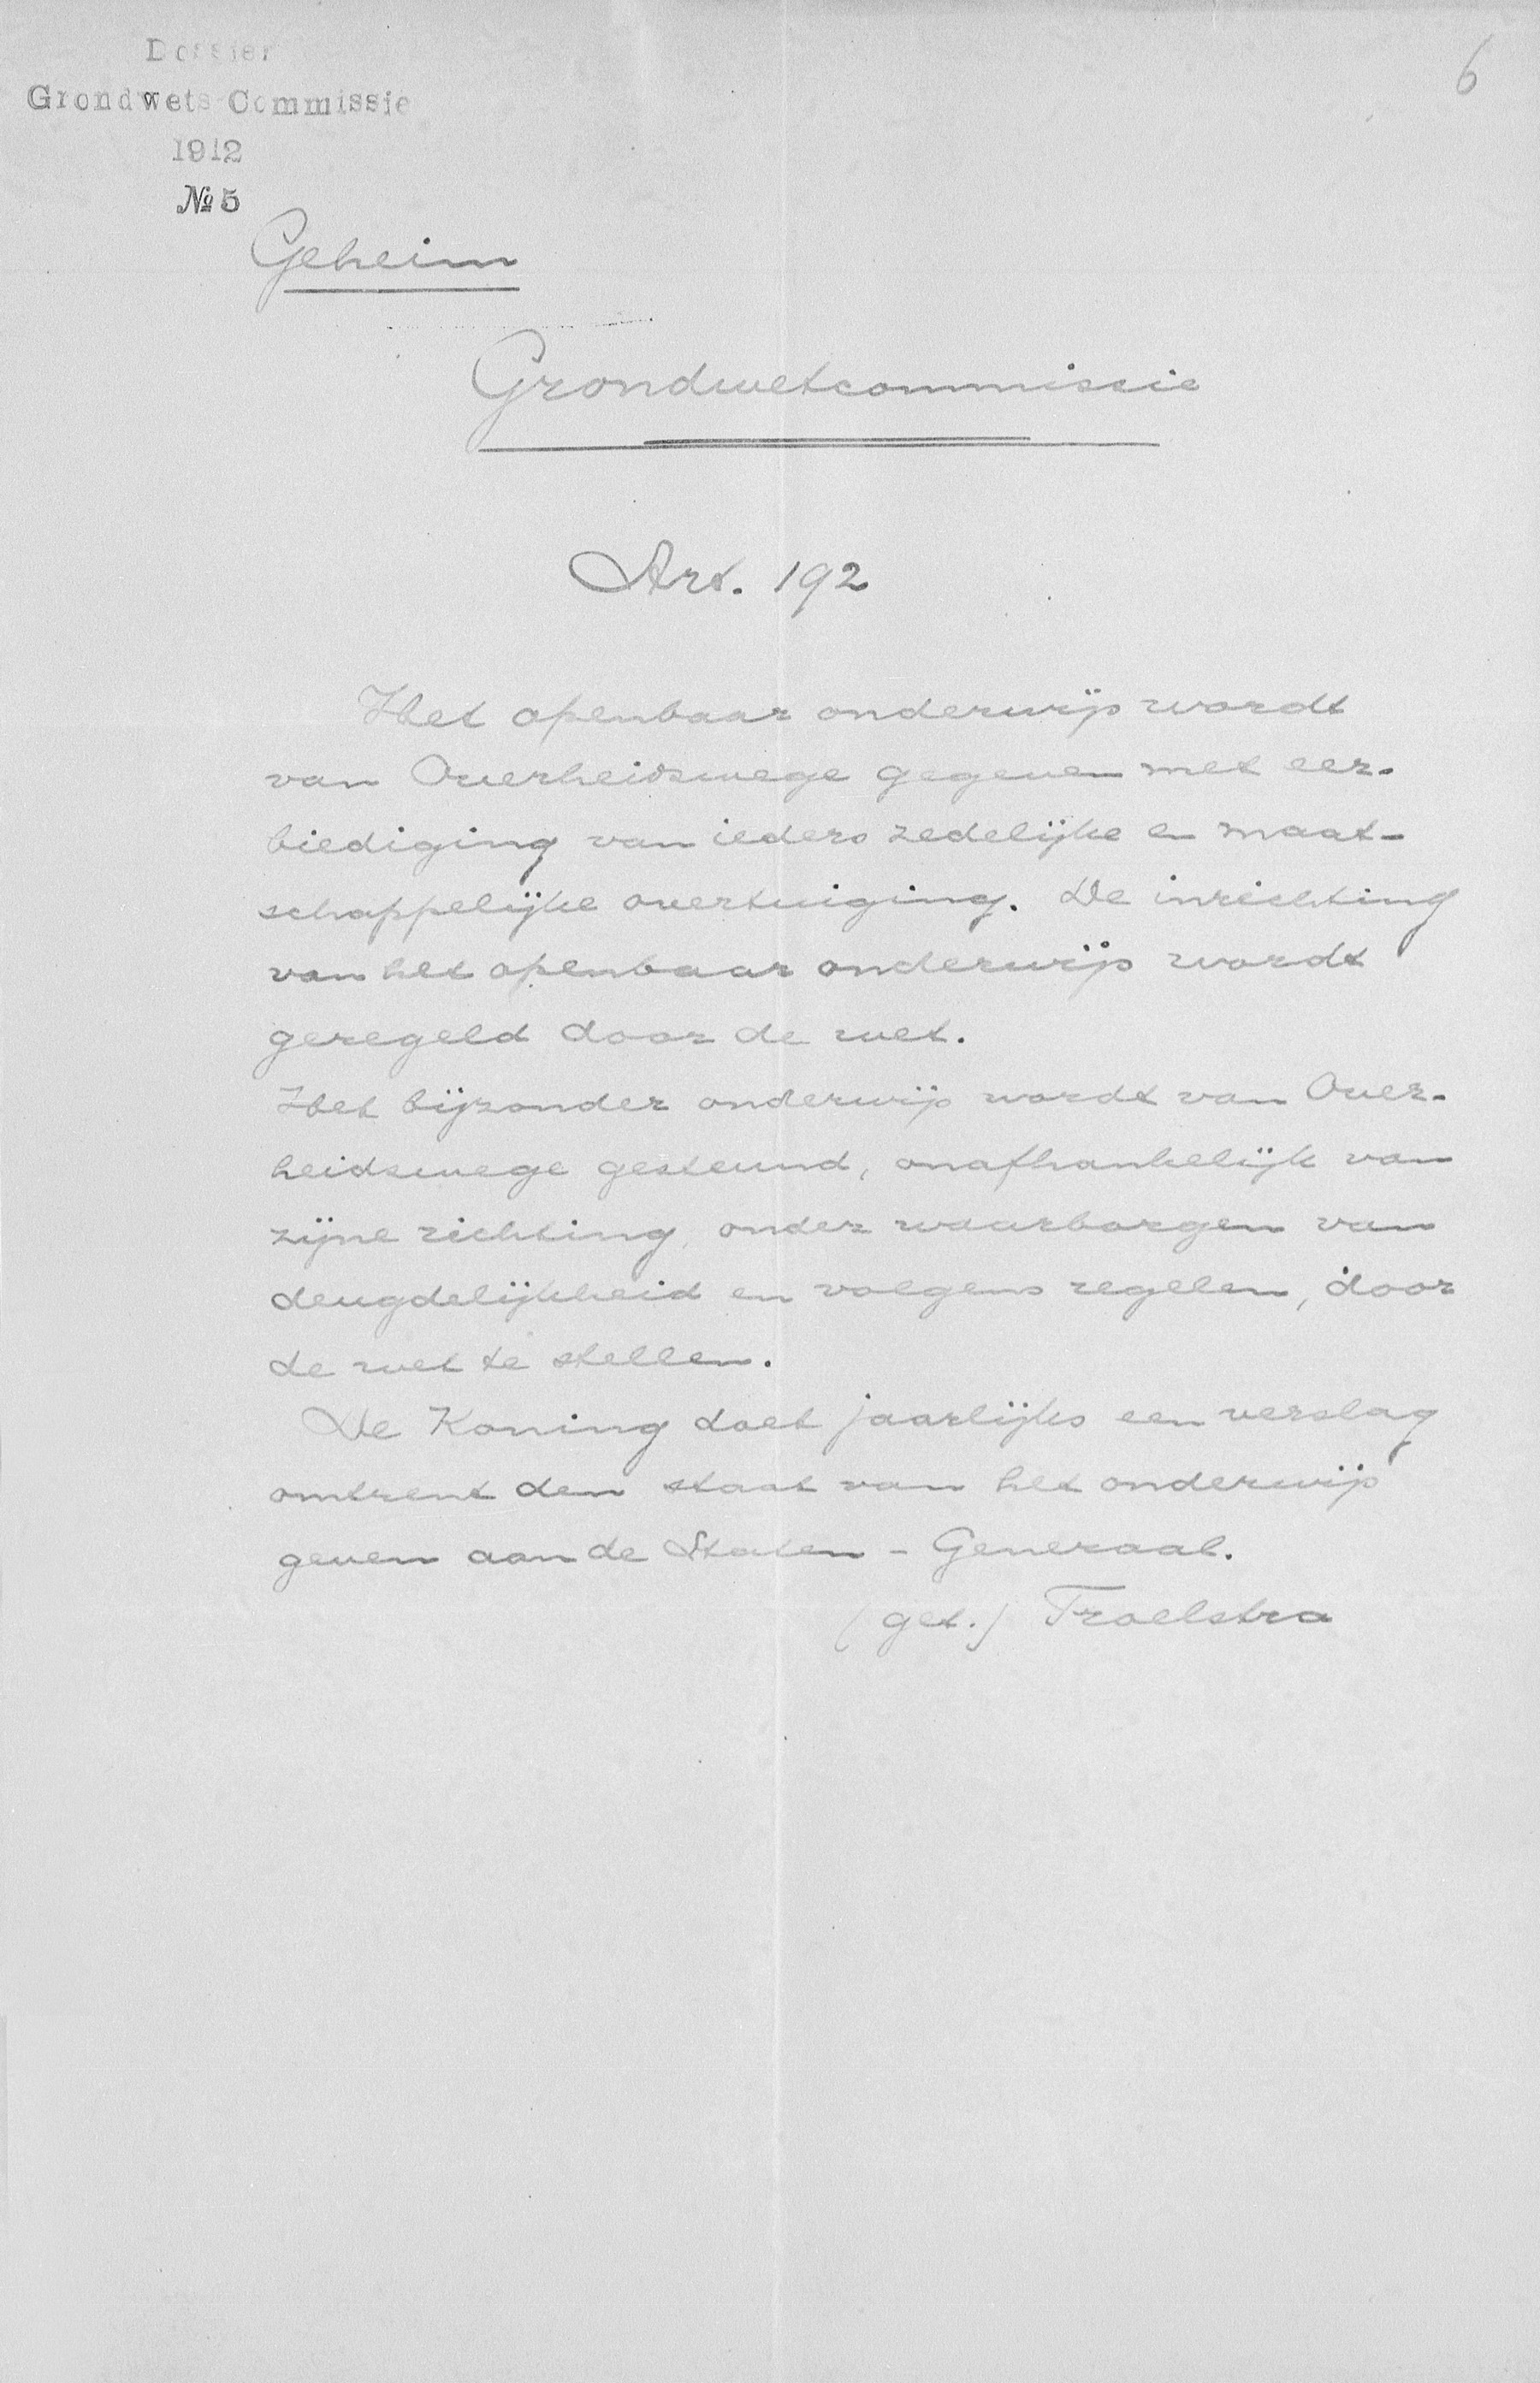 Dossier
Grondwets-Commissie
1912
№ 5
6
Geheim
Grondwetcommissie
Art. 192
Het openbaar onderwijs wordt
van Overheidswege gegeven met eer-
biediging van ieders zedelijke en maat-
schappelijke overtuiging. De inrichting
van het openbaar onderwijs wordt
geregeld door de wet.
Het bijzonder onderwijs wordt van Over-
heidswege gesteund, onafhankelijk van
zijne richting, onder waarborgen van
deugdelijkheid en volgens regelen, door
de wet te stellen.
De Koning doet jaarlijks een verslag
omtrent den staat van het onderwijs
geven aan de Staten-Generaal.
(get.) Troelstra